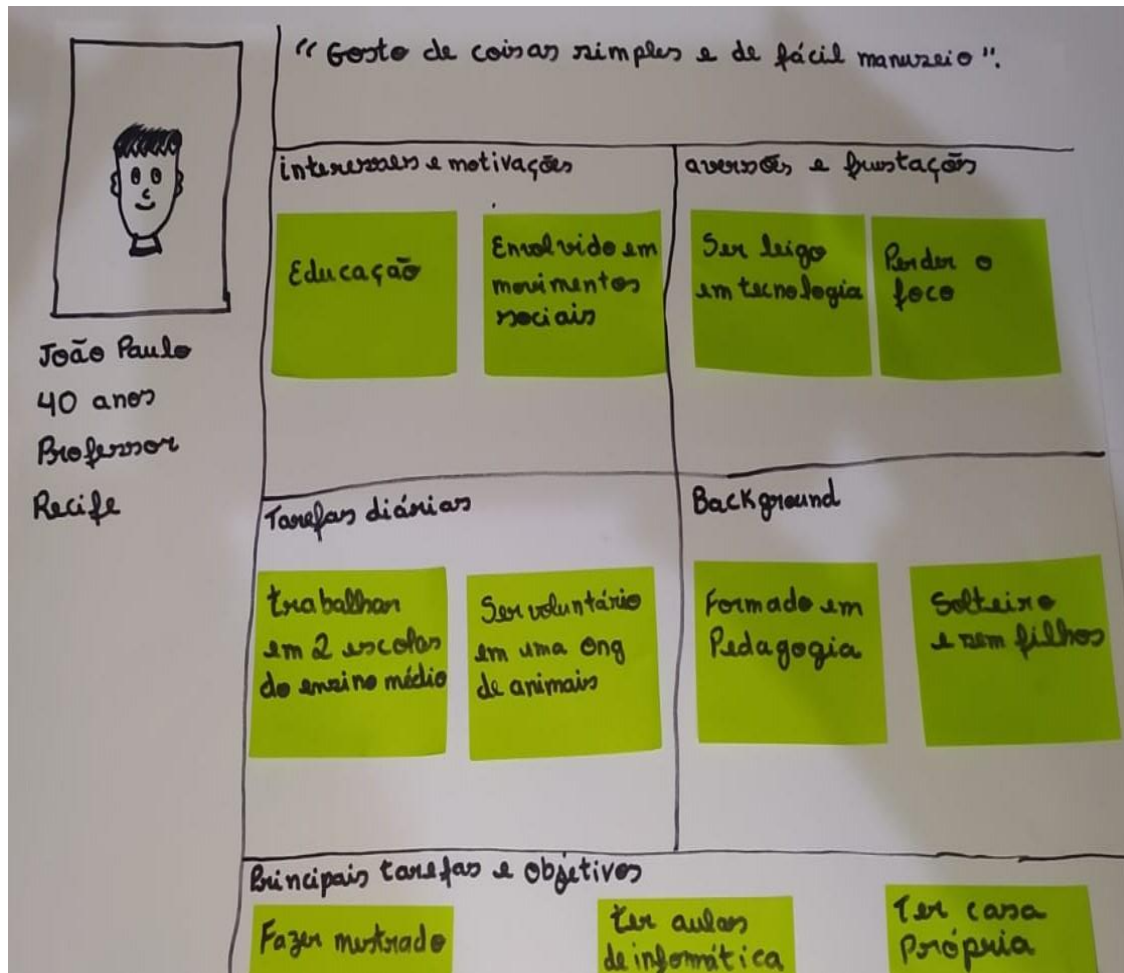 "Gosto de coisas simples e de fácil manuzeio".
João Paulo
40 anos
Professor
Recife
interesses e motivações
Educação
Envolvido em
movimentos
sociais
aversões e frustações
Ser leigo
em tecnologia
Perder o
foco
Tarefas diárias
trabalhar
em 2 escolas
do ensino médio
Ser voluntário
em uma ong
de animais
Background
Formado em
Pedagogia
Solteiro
e sem filhos
Principais tarefas e objetivos
Fazer mestrado
ter aulas
de informática
Ter casa
Própria